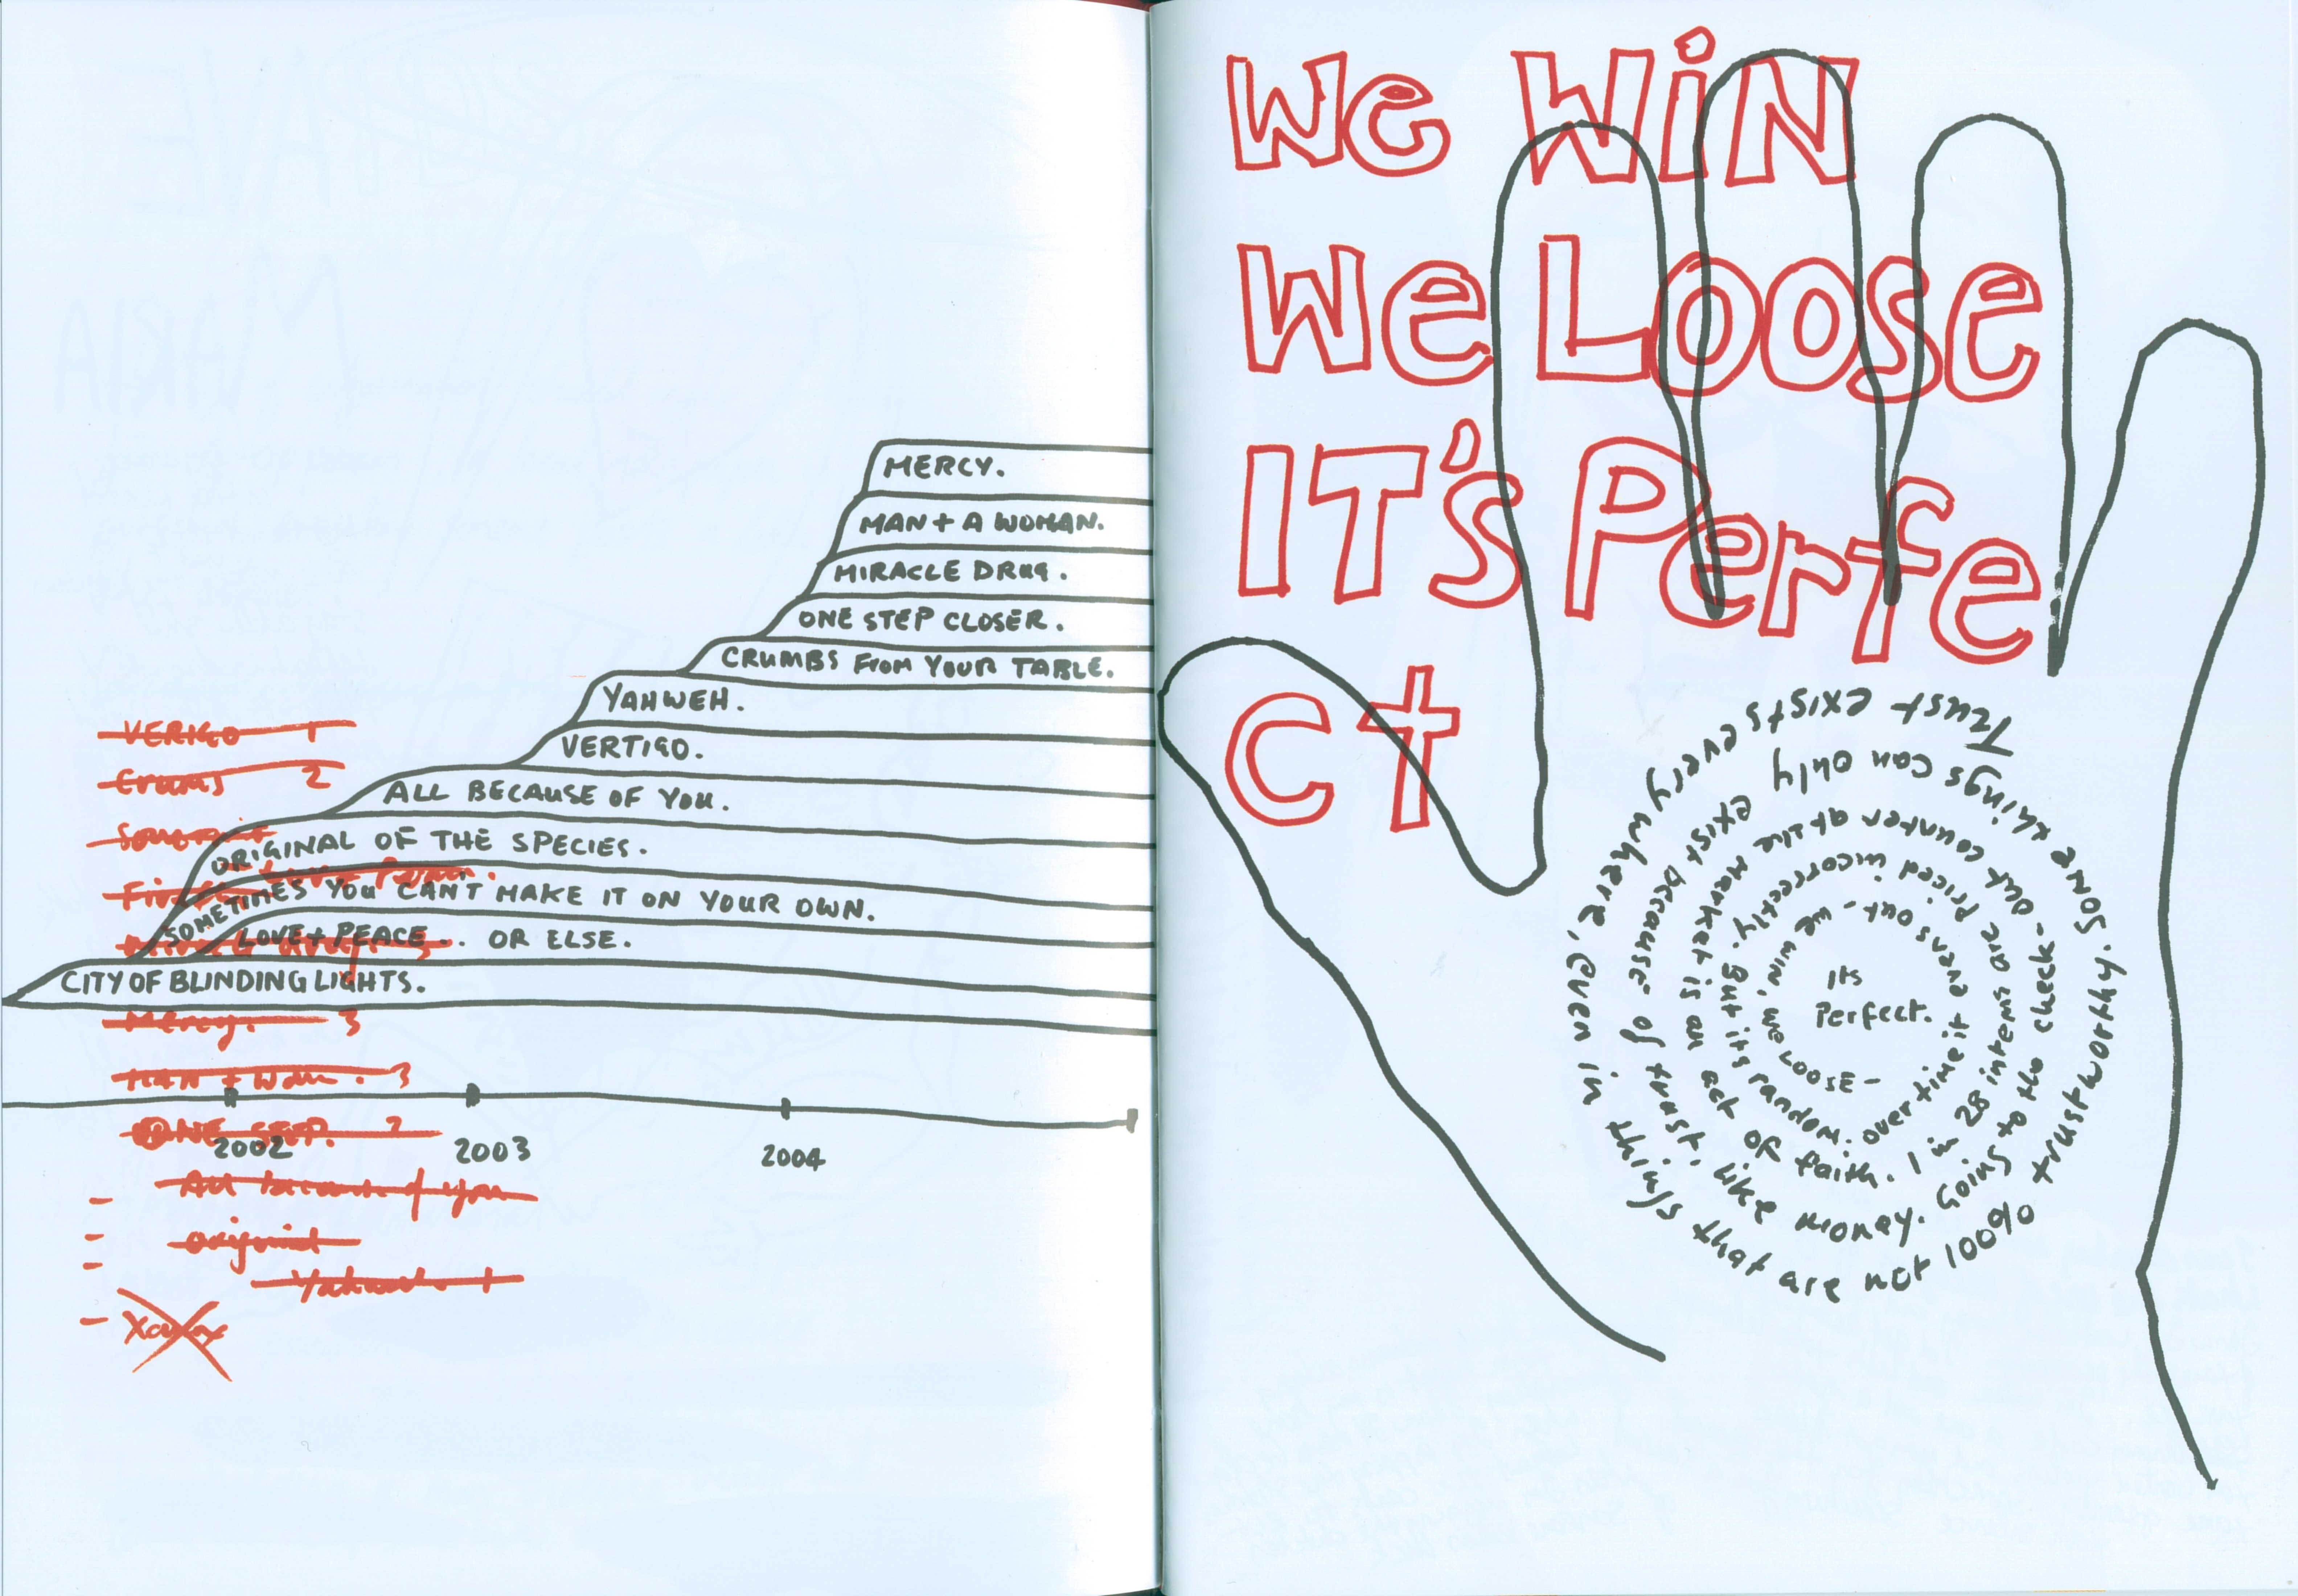 MERCY.
MAN + A WOMAN.
MIRACLE DRUG.
ONE STEP CLOSER.
CRUMBS FROM YOUR TABLE.
YAHWEH.
VERTIGO.
ALL BECAUSE OF YOU.
ORIGINAL OF THE SPECIES.
SOMETIMES YOU CAN'T MAKE IT ON YOUR OWN.
LOVE + PEACE.. OR ELSE.
CITY OF BLINDING LIGHTS.
VERIGO 1
Crums 2
Mercy. 3
MAN + Wom. 3
ONE STEP. 2
All because of you
original
Yahweh 1
2002 2003 2004
We WiN
We Loose
IT's Perfe
ct
Trust exists every where, even in things that are not 100% trustworthy. Some
things can only exist because of trust, like money. Going to the check-
out counter at the market is an act of faith. 1 in 28 items are
priced incorrectly. But its random. over time it
evens out - we win, we Loose -
Its
Perfect.